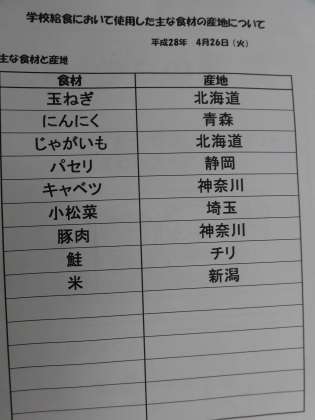 学校給食において使用した主な食材の産地について
平成28年 4月26日（火）
主な食材と産地
食材 産地
玉ねぎ 北海道
にんにく 青森
じゃがいも 北海道
パセリ 静岡
キャベツ 神奈川
小松菜 埼玉
豚肉 神奈川
鮭 チリ
米 新潟